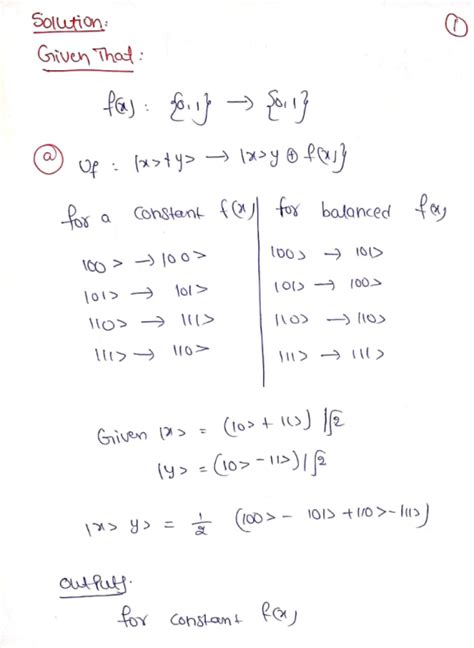 Solution:
①
Given That:
f(x) : {0,1} → {0,1}
ⓐ Uf : |x>|y> → |x>y ⊕ f(x)}
for a constant f(x) | for balanced f(x)
|00> → |00> | |00> → |01>
|01> → |01> | |01> → |00>
|10> → |11> | |10> → |10>
|11> → |10> | |11> → |11>
Given |x> = (|0> + |1>) /√2
|y> = (|0> - |1>) /√2
|x> y> = 1/2 (|00> - |01> + |10> - |11>)
outputs.
for constant f(x)